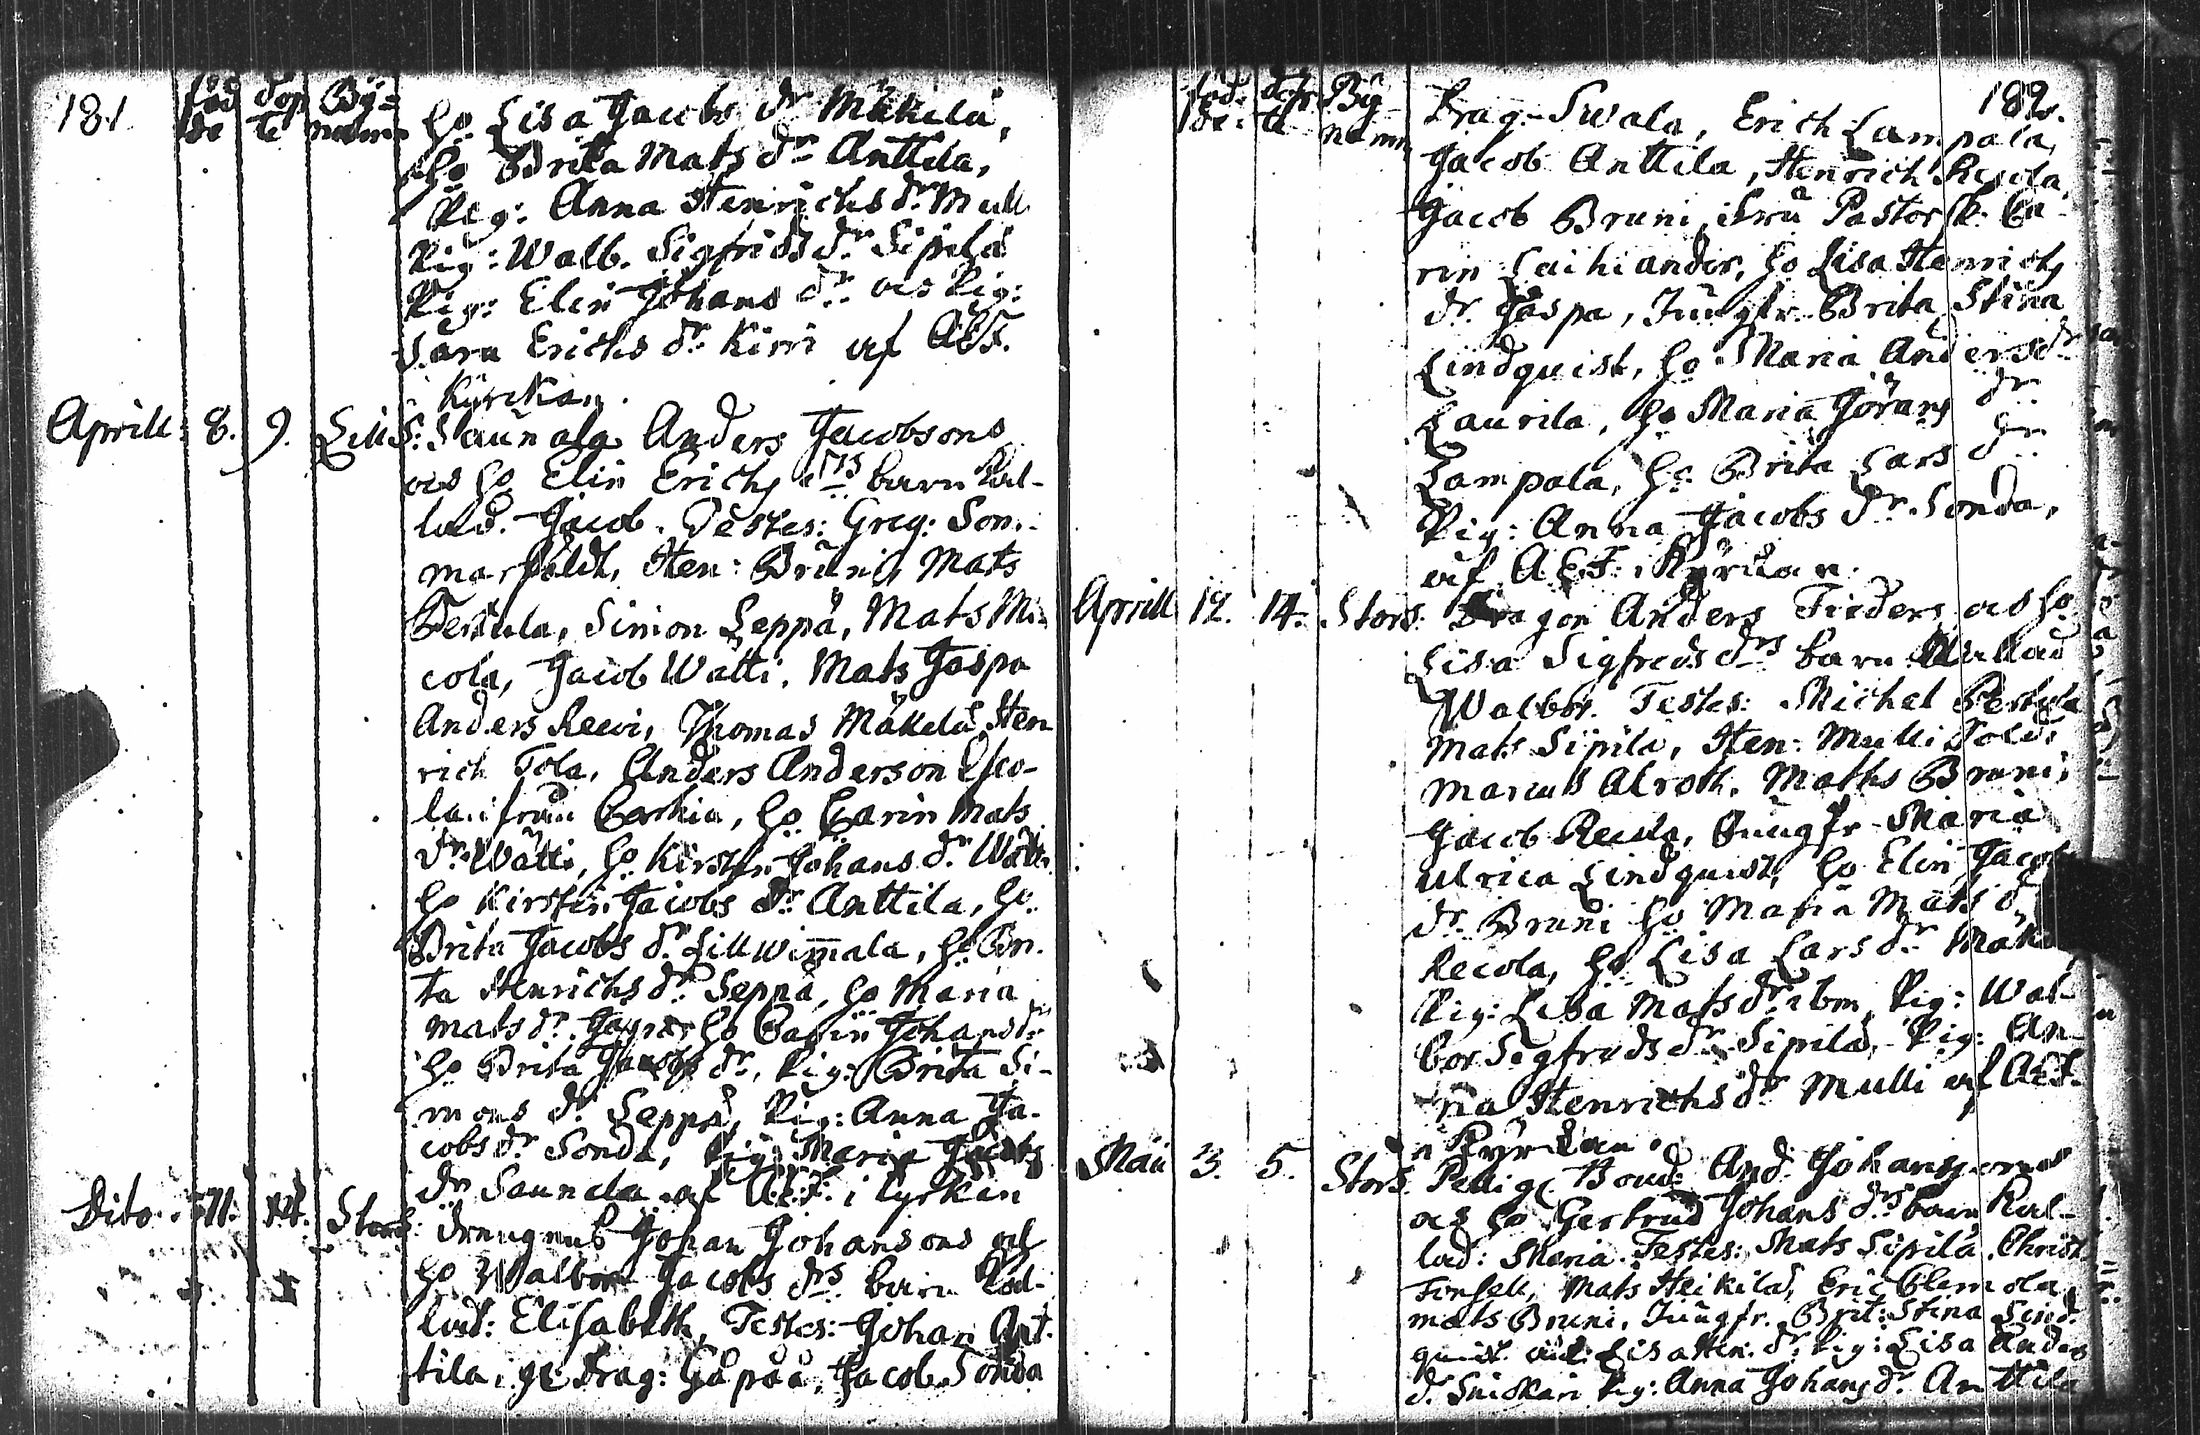 181.
föd
de
döp
te
By=
namn
ho Lisa Jacobs dr Mäkelä,
ho Brita Mats dr Anttila,
Pig: Anna Henrichs dr Mull
Pig: Walb. Sigfrids dr Sipilä
Pig: Elin Johans dr och Pig:
Sara Erichs dr Kirri af AEF.
i Kyrckan.
Aprill 8. 9. Lill S: Saunala Anders Jacobsons
och ho Elin Erichs drs barn kal-
lad. Jacob. Testes: Greg: Som-
marfäldt, Hen: Bruni, Mats
Pertula, Simon Seppä, Mats Mi-
cola, Jacob Wätti, Mats Jaspa
Anders Rewi, Thomas Mäkelä, Hen
rich Tola, Anders Anderson
från ho Carin Mats
dr Wätti, ho Kirstin Johans dr Wätti
ho Kirstin Jacobs dr Anttila, ho
Brita Jacobs dr Lillwim̅ala, ho Bri-
ta Henrichs dr Seppä, ho Maria
Mats dr ho Carin Johans dr
ho Brita Jacobs dr, Pig: Brita Si-
mons dr Seppä, Pig: Anna Ja-
cobs dr Sonda, Pig: Maria Jacobs
dr Saunala af AEF: i kyrkan
Dito 11. 14. Stors: Johan Johansons och
ho Walbor Jacobs drs barn kal-
lad: Elisabeth, Testes: Johan Ant-
tila, gl: Drag: Gåpåå, Jacob Sonda
182.
föd
de
döp
te
By
namn
Drag: Swala, Erich Lampala,
Jacob Anttila, Henrich Recola
Jacob Bruni, Fru Pastorsk: Ca-
rin Laihiander, ho Lisa Henrichs
dr Jaspa, Jungfr. Brita Stina
Lindquist, ho Maria Anders dr
Laurila, ho Maria Görans dr
Lampala, ho Brita Lars dr
Pig: Anna Jacobs dr Sonda,
af AEF: i Kyrckan.
Aprill 12. 14. Stors. Dragon Anders Finders och ho
Lisa Sigfreds drs barn kallad
Walbor. Testes: Michel Pertula
Mats Sipilä, Hen: Mulli Sold:
Marcus Alroth, Maths Bruni,
Jacob Recola, Jungfr. Maria
Ulrica Lindquist, ho Elin Jacobs
dr Bruni ho Maria Mats dr
Recola, ho Lisa Lars dr
Pig: Lisa Mats dr ibm, Pig: Wal-
bor Sigfrids dr Sipilä, Pig: An-
na Henrichs dr Mulli af AEF.
i Kyrckan.
Maii 3. 5. Stors. And: Johanssons
och ho Gertrud Johans drs barn kal-
lad: Maria. Testes: Mats Sipilä, Christ
Forsell, Mats Heikilä, Eric Clemola,
Mats Bruni, Jungfr. Brit: Stina Lind-
quist Lisa Hen: dr Pig: Lisa Anders
dr Pig: Anna Johans dr Anttila